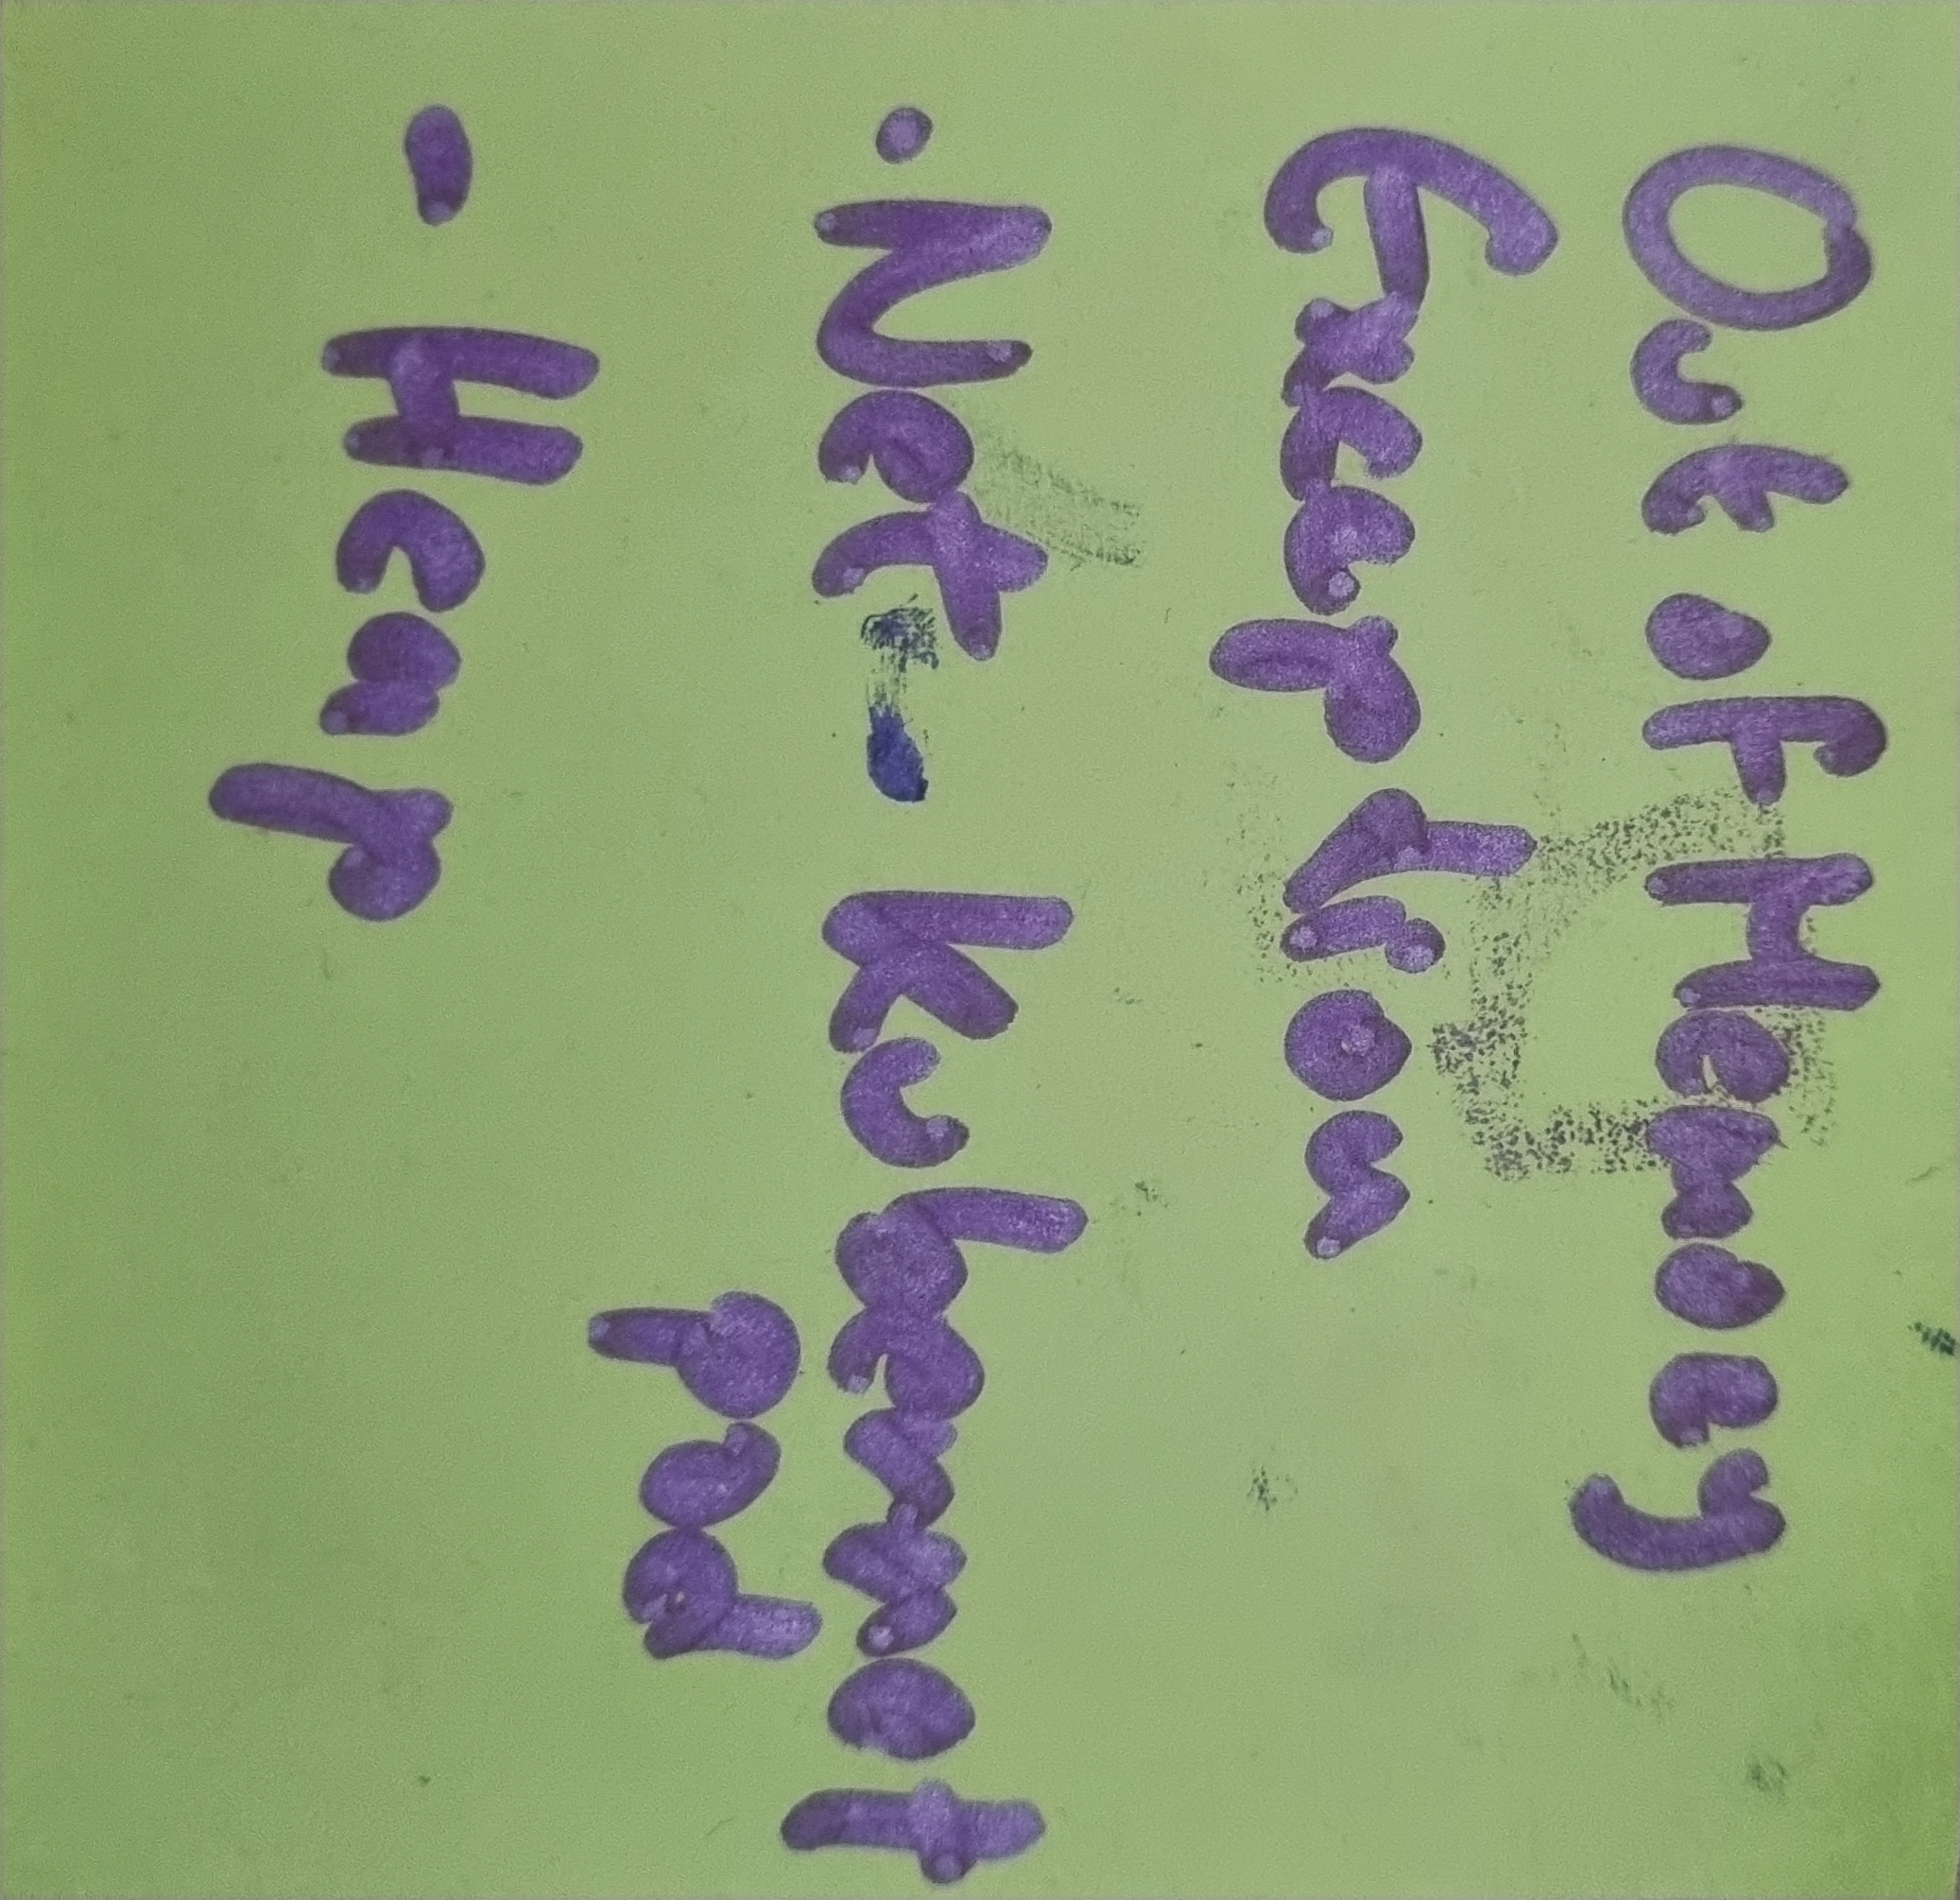 Out of Memory
Exception
.Net - Kubernnet
pod
- Heap